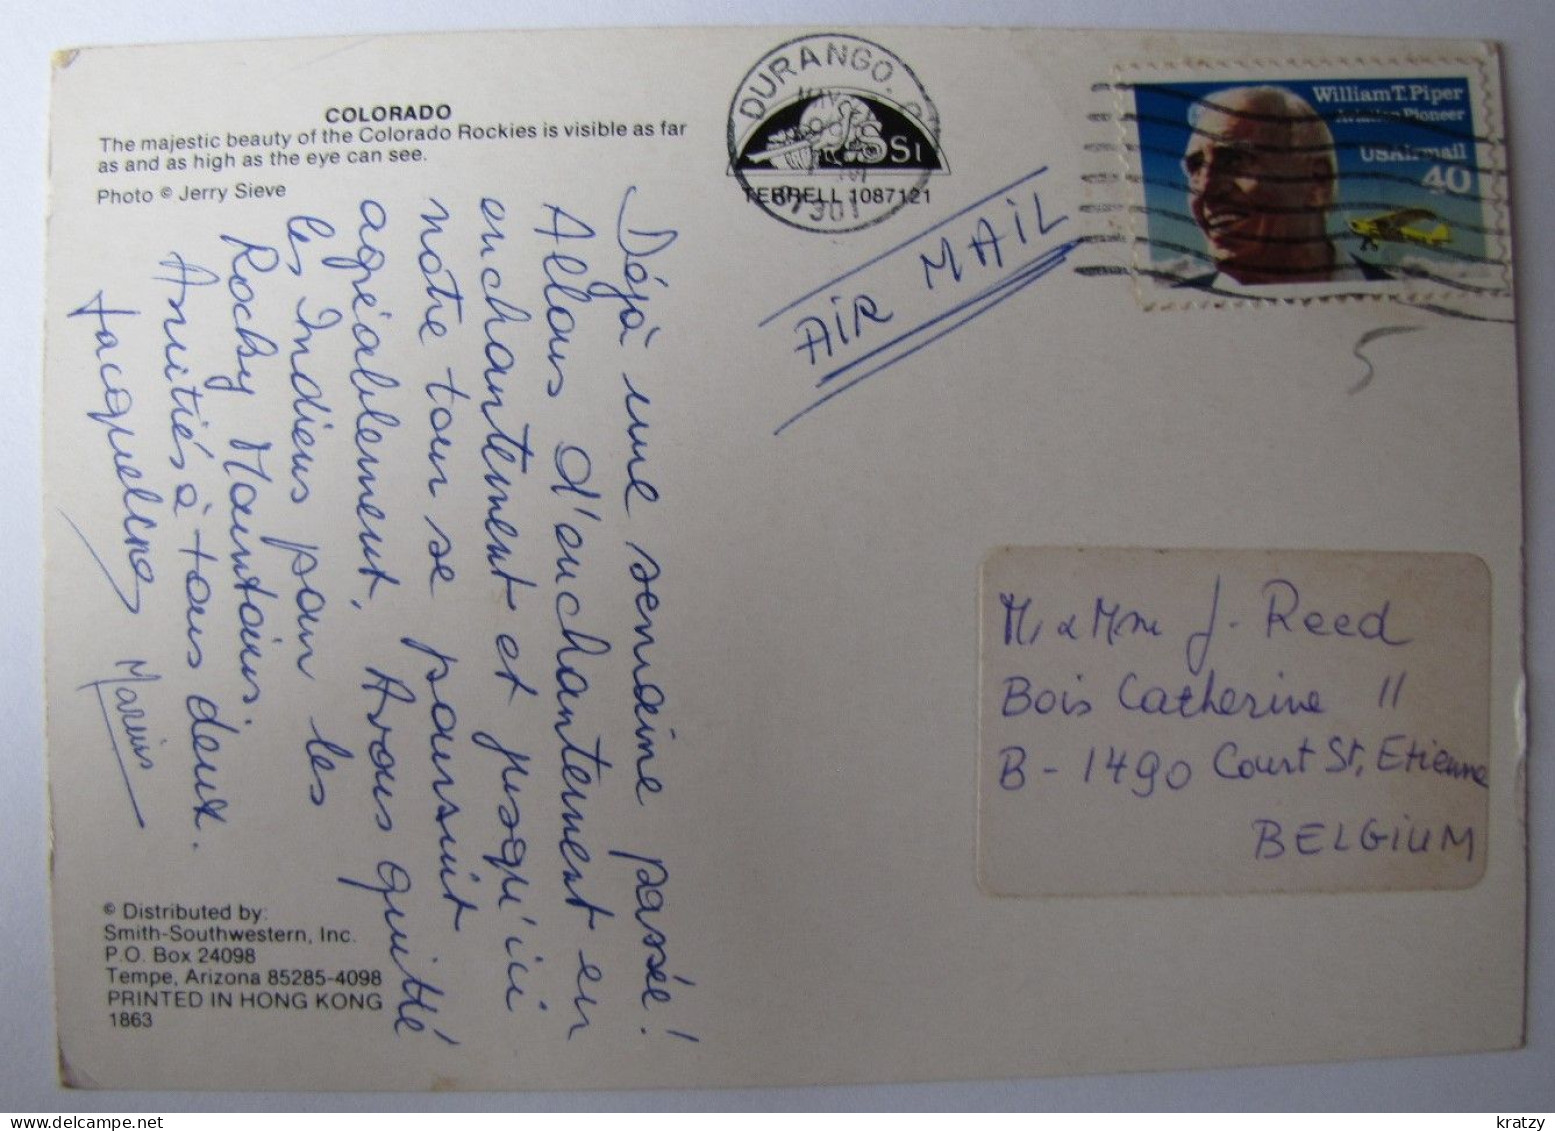 COLORADO
The majestic beauty of the Colorado Rockies is visible as far
as and as high as the eye can see.
Photo © Jerry Sieve
Déjà une semaine passée!
Allons d'enchantement en
enchantement et jusqu'ici
notre tour se poursuit
agréablement. Avons quitté
les Indiens pour les
Rocky Mountains.
Amitiés à tous deux.
Jacqueline
Marius
© Distributed by:
Smith-Southwestern, Inc.
P.O. Box 24098
Tempe, Arizona 85285-4098
PRINTED IN HONG KONG
1863
DURANGO,
81301
SSI
TERRELL 1087121
AIR MAIL
William T. Piper
Aviation Pioneer
USAirmail
40
5
M. & Mme J. Reed
Bois Catherine 11
B-1490 Court St. Etienne
BELGIUM
kratzy